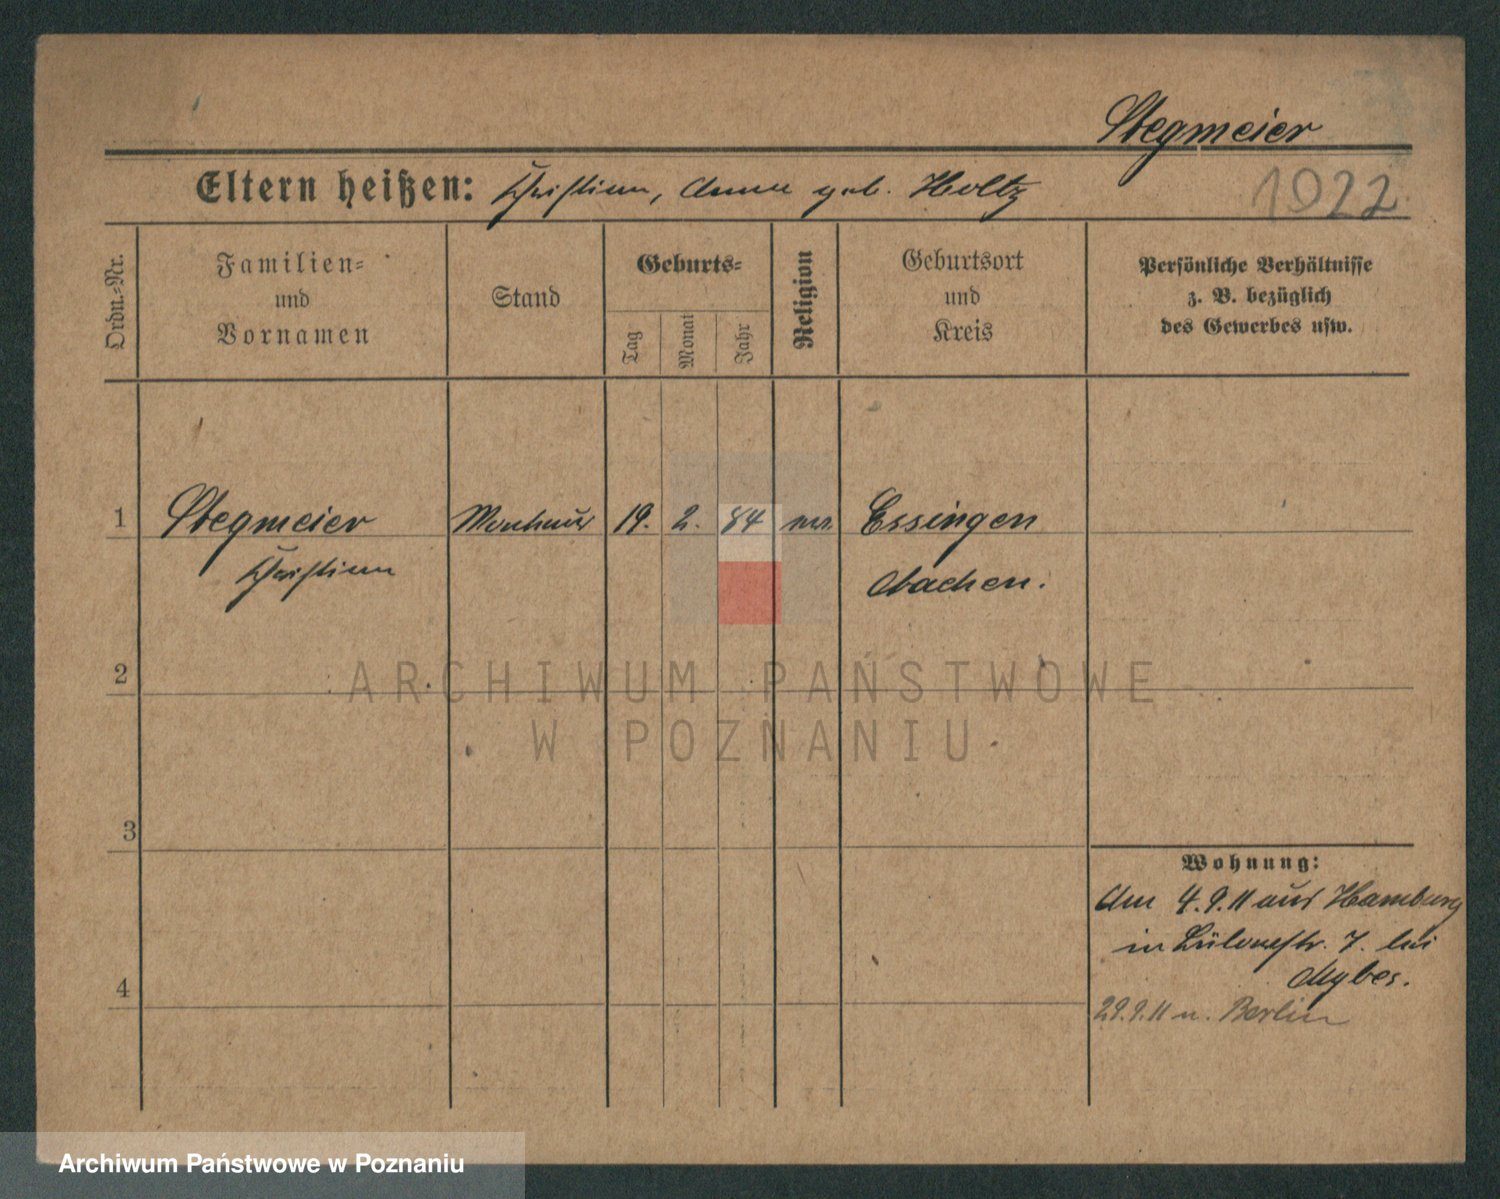 Stegmeier
Eltern heißen: Christian, Anna geb. Holtz
1922
Ordn.=Nr.
Familien=
und
Vornamen
Stand
Geburts=
Tag
Monat
Jahr
Religion
Geburtsort
und
Kreis
Persönliche Verhältnisse
z. B. bezüglich
des Gewerbes usw.
1 Stegmeier Monteur 19. 2. 84 Essingen
Christian Aachen.
2
ARCHIWUM PAŃSTWOWE
W POZNANIU
3
Wohnung:
Am 4.9.11 aus Hamburg
in 7. bei
4
29.9.11 n. Berlin
Archiwum Państwowe w Poznaniu